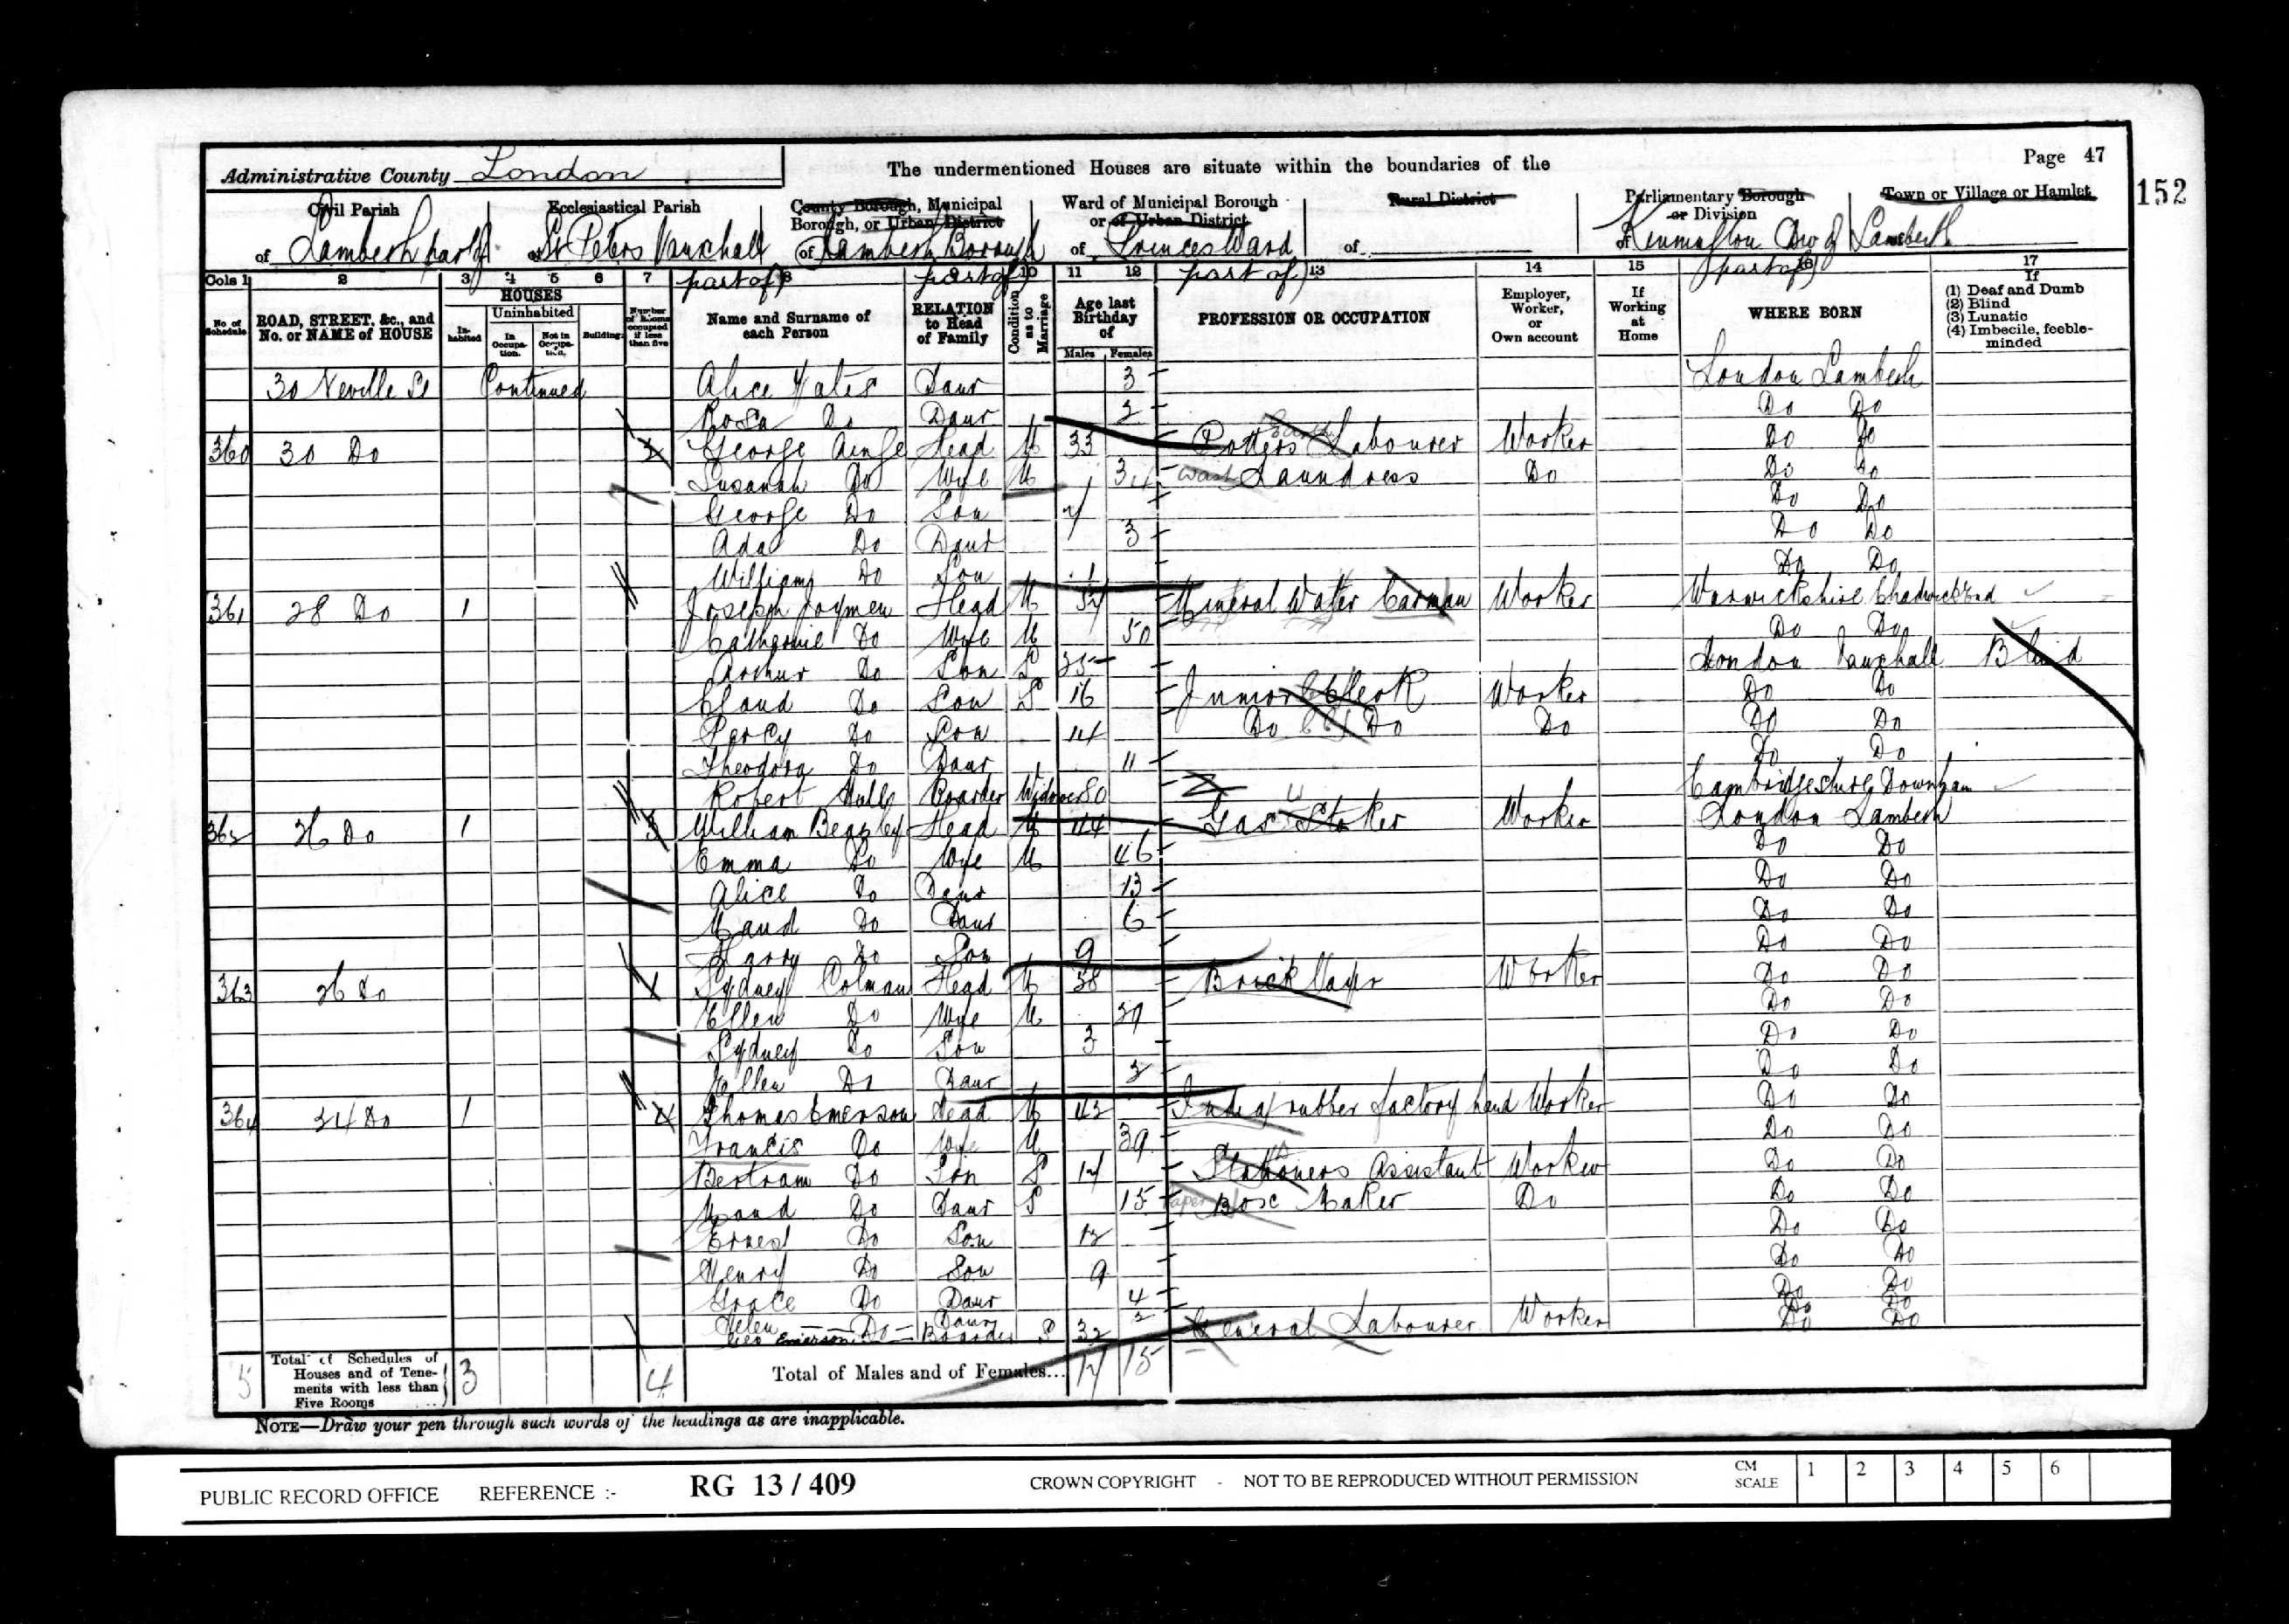 Administrative County London
The undermentioned Houses are situate within the boundaries of the
Page 47
152
Civil Parish
of Lambeth part of
Ecclesiastical Parish
of St Peters Vauxhall
County Borough, Municipal
Borough, or Urban District
of Lambeth Borough
Ward of Municipal Borough
or of Urban District
of Princes Ward
Rural District
of
Parliamentary Borough
or Division
of Kennington Div of Lambeth
Town or Village or Hamlet
part of) part of) part of) part of)
Cols 1 2 3 4 5 6 7 8 9 10 11 12 13 14 15 16 17
No. of Schedule
ROAD, STREET, &c., and No. or NAME of HOUSE
HOUSES
Inhabited
Uninhabited
In Occupation.
Not in Occupation.
Building
Number of Rooms occupied if less than five
Name and Surname of each Person
RELATION to Head of Family
Condition as to Marriage
Age last Birthday of
Males Females
PROFESSION OR OCCUPATION
Employer, Worker, or Own account
If Working at Home
WHERE BORN
If
(1) Deaf and Dumb
(2) Blind
(3) Lunatic
(4) Imbecile, feeble-minded
30 Neville St Continued Alice Yates Daur 3 London Lambeth
Rosa Do Daur 2 Do Do
360 30 Do George Ainge Head M 33 Potters Labourer Worker Do Do
Susanah Do Wife M 34 Wash Laundress Do Do Do
George Do Son Do Do
Ada Do Daur 3 Do Do
William Do Son 1 Do Do
361 28 Do 1 Joseph Joymen Head M Mineral Water Carman Worker Warwickshire Chadwick End
Catherine Do Wife M 50 Do Do
Arthur Do Son S 25 London Vauxhall Blind
Claud Do Son S 16 Junior Clerk Worker Do Do
Percy Do Son 14 Do Do Do Do Do
Theodora Do Daur 11 Do Do
Robert Boarder Widower 80 Cambridgeshire Downham
362 26 Do 1 3 William Beazley Head M 44 Gas Stoker Worker London Lambeth
Emma Do Wife M 46 Do Do
Alice Do Daur 13 Do Do
Maud Do Daur 6 Do Do
Harry Do Son 9 Do Do
363 26 Do Sydney Colman Head M 38 Bricklayer Worker Do Do
Ellen Do Wife M Do Do
Sydney Do Son 3 Do Do
Ellen Do Daur 2 Do Do
364 24 Do 1 4 Thomas Emerson Head M 42 India rubber factory hand Worker Do Do
Francis Do Wife M 39 Do Do
Bertram Do Son S 17 Stationers Assistant Worker Do Do
Maud Do Daur S 15 Paper Box Maker Do Do Do
Ernest Do Son 12 Do Do
Henry Do Son 9 Do Do
Grace Do Daur 4 Do Do
Helen Do Daur 2 Do Do
Emerson Boarder S 32 General Labourer Worker Do Do
5 Total of Schedules of Houses and of Tenements with less than Five Rooms 3 4
Total of Males and of Females... 17 15
NOTE—Draw your pen through such words of the headings as are inapplicable.
PUBLIC RECORD OFFICE REFERENCE :- RG 13 / 409 CROWN COPYRIGHT - NOT TO BE REPRODUCED WITHOUT PERMISSION CM SCALE 1 2 3 4 5 6